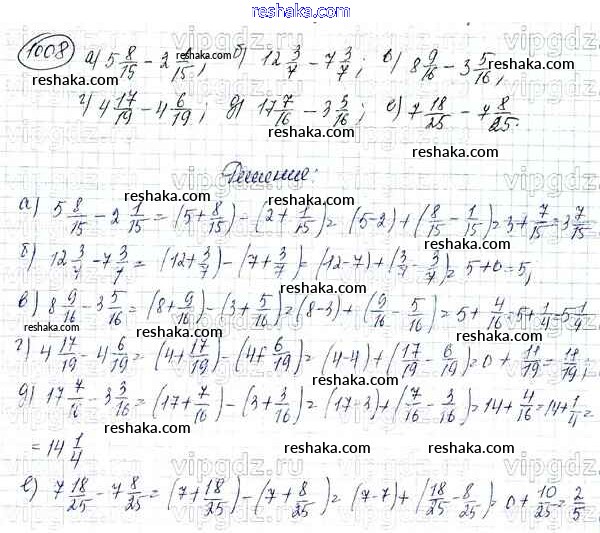 www.reshaka.com
1008 а) 5 8/15 - 2 1/15; б) 12 3/7 - 7 3/7; в) 8 9/16 - 3 5/16;
г) 4 17/19 - 4 6/19; д) 17 7/16 - 3 3/16; е) 7 18/25 - 7 8/25.
Решение:
а) 5 8/15 - 2 1/15 = (5 + 8/15) - (2 + 1/15) = (5-2) + (8/15 - 1/15) = 3 + 7/15 = 3 7/15
б) 12 3/7 - 7 3/7 = (12 + 3/7) - (7 + 3/7) = (12-7) + (3/7 - 3/7) = 5 + 0 = 5;
в) 8 9/16 - 3 5/16 = (8 + 9/16) - (3 + 5/16) = (8-3) + (9/16 - 5/16) = 5 + 4/16 = 5 + 1/4 = 5 1/4
г) 4 17/19 - 4 6/19 = (4 + 17/19) - (4 + 6/19) = (4-4) + (17/19 - 6/19) = 0 + 11/19 = 11/19;
д) 17 7/16 - 3 3/16 = (17 + 7/16) - (3 + 3/16) = (17-3) + (7/16 - 3/16) = 14 + 4/16 = 14 + 1/4 =
= 14 1/4
е) 7 18/25 - 7 8/25 = (7 + 18/25) - (7 + 8/25) = (7-7) + (18/25 - 8/25) = 0 + 10/25 = 2/5